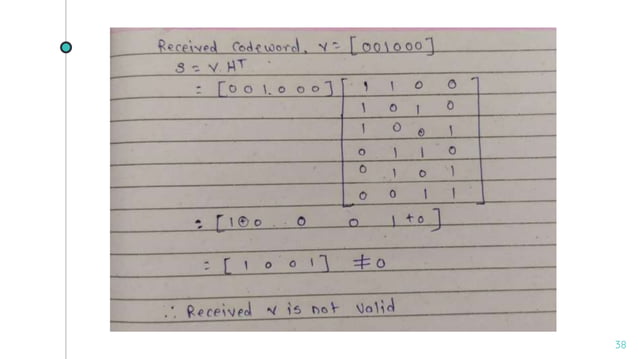 Received Codeword, r = [001000]
S = r. HT
= [0 0 1. 0 0 0] [ 1 1 0 0
1 0 1 0
1 0 0 1
0 1 1 0
0 1 0 1
0 0 1 1 ]
= [1⊕0 0 0 1+0]
= [1 0 0 1] ≠ 0
∴ Received r is not valid
38